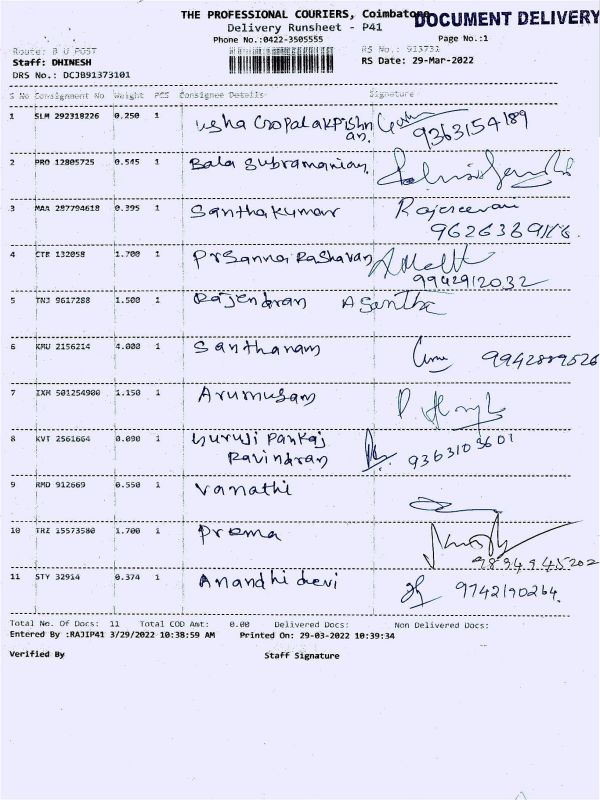 THE PROFESSIONAL COURIERS, Coimbatore
DOCUMENT DELIVERY
Delivery Runsheet - P41
Phone No.:0422-3505555
Page No.:1
Route: B U POST
RS No.: 913731
Staff: DHINESH
RS Date: 29-Mar-2022
DRS No.: DCJB91373101
S No Consignment No Weight PCS Consignee Details Signature
1 SLM 292318226 0.250 1 usha Gopalakrishnan. 9363154189
2 PRO 12805725 0.545 1 Bala Subramanian
3 MAA 287794618 0.395 1 Santhakumar Rajeswari
4 CTR 132058 1.700 1 Prsanna Raghavan 9942912032
5 TNJ 9617288 1.500 1 Rajendran A Santha
6 KMU 2156214 4.000 1 Santhanam 9942889526
7 IXM 501254900 1.150 1 Arumugam
8 KVT 2561664 0.090 1 Guruji Pankaj
Ravindran 9363103601
9 RMD 912669 0.550 1 Vanathi
10 TRZ 15573580 1.700 1 Prema
9894945202
11 STY 32914 0.374 1 Anandhi devi 9742190264
Total No. Of Docs: 11 Total COD Amt: 0.00 Delivered Docs: Non Delivered Docs:
Entered By :RAJIP41 3/29/2022 10:38:59 AM Printed On: 29-03-2022 10:39:34
Verified By Staff Signature